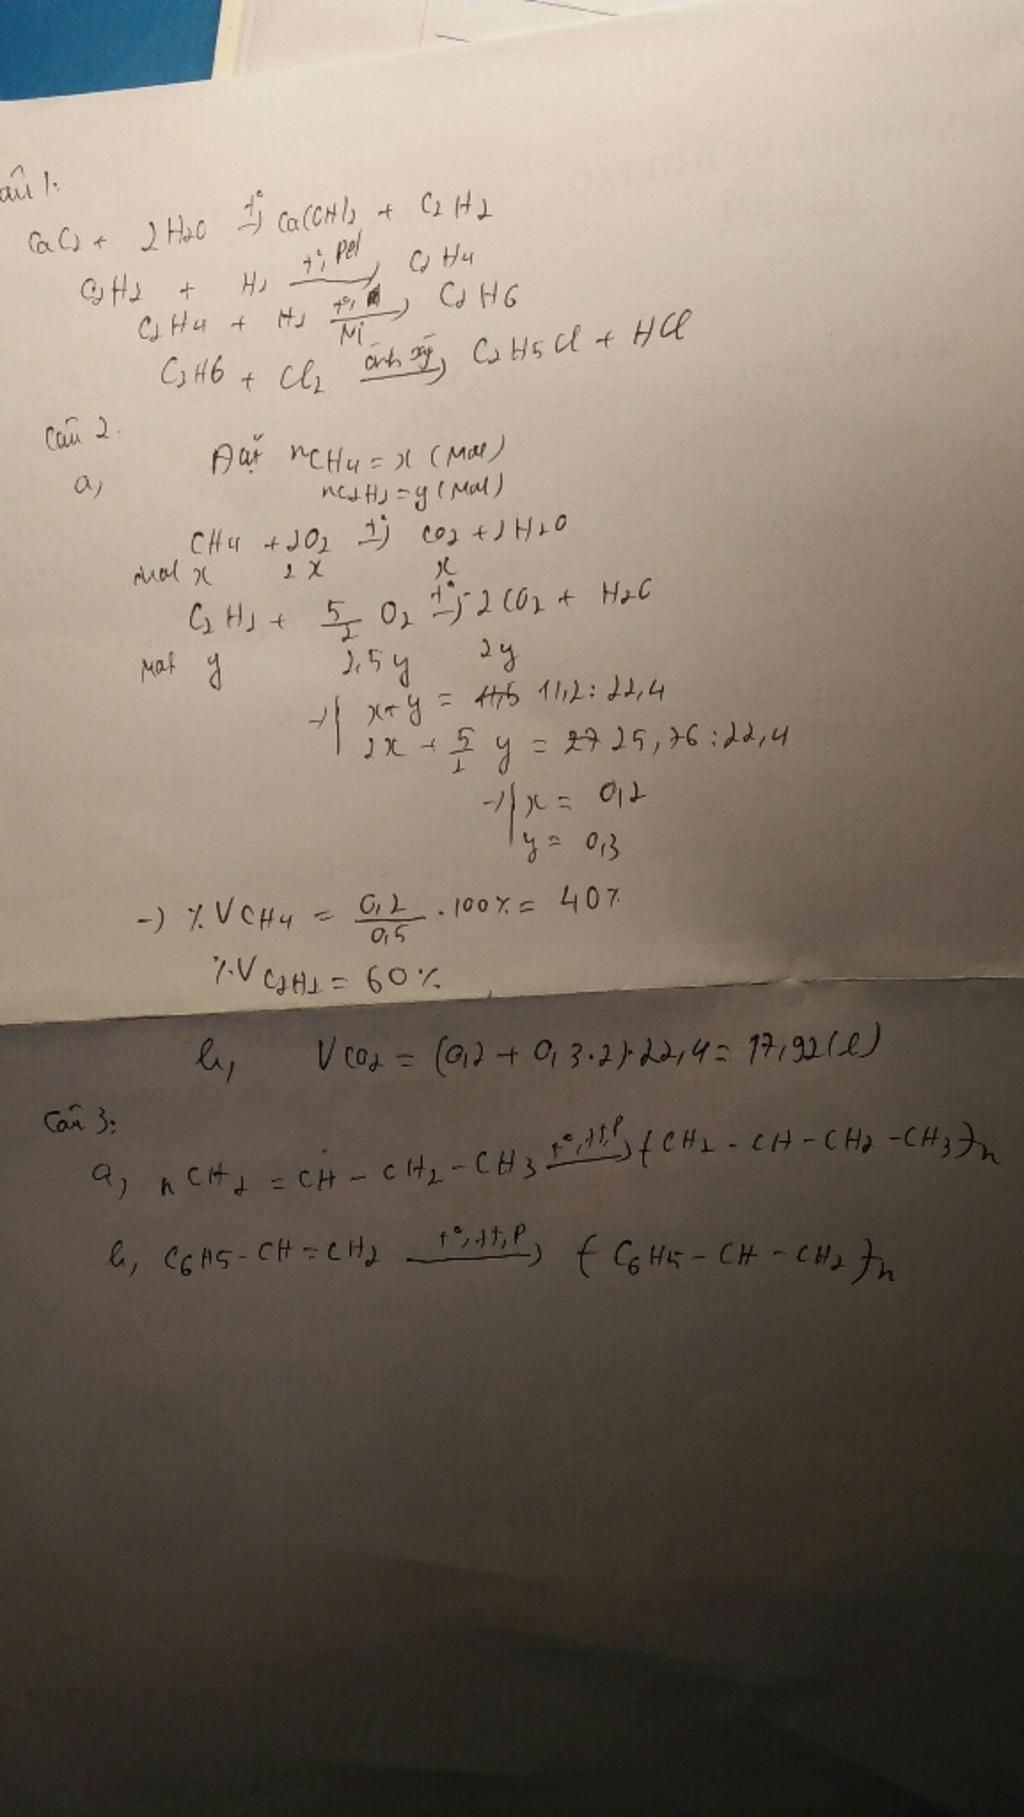 Câu 1:
CaC2 + 2H2O t°→ Ca(OH)2 + C2H2
C2H2 + H2 t°, Pd→ C2H4
C2H4 + H2 t°, Ni→ C2H6
C2H6 + Cl2 ánh sáng→ C2H5Cl + HCl
Câu 2:
a, Đặt nCH4 = x (mol)
nC2H2 = y (mol)
CH4 + 2O2 t°→ CO2 + 2H2O
mol x 2x x
C2H2 + 5/2 O2 t°→ 2CO2 + H2O
mol y 2,5y 2y
→ x + y = 11,2 : 22,4
2x + 5/2 y = 25,76 : 22,4
→ x = 0,2
y = 0,3
→ %VCH4 = 0,2/0,5 . 100% = 40%
%VC2H2 = 60%
b, VCO2 = (0,2 + 0,3.2).22,4 = 17,92 (l)
Câu 3:
a, nCH2 = CH - CH2 - CH3 t°, xt, P→ (CH2 - CH - CH2 - CH3)n
b, C6H5 - CH = CH2 t°, xt, P→ (C6H5 - CH - CH2)n